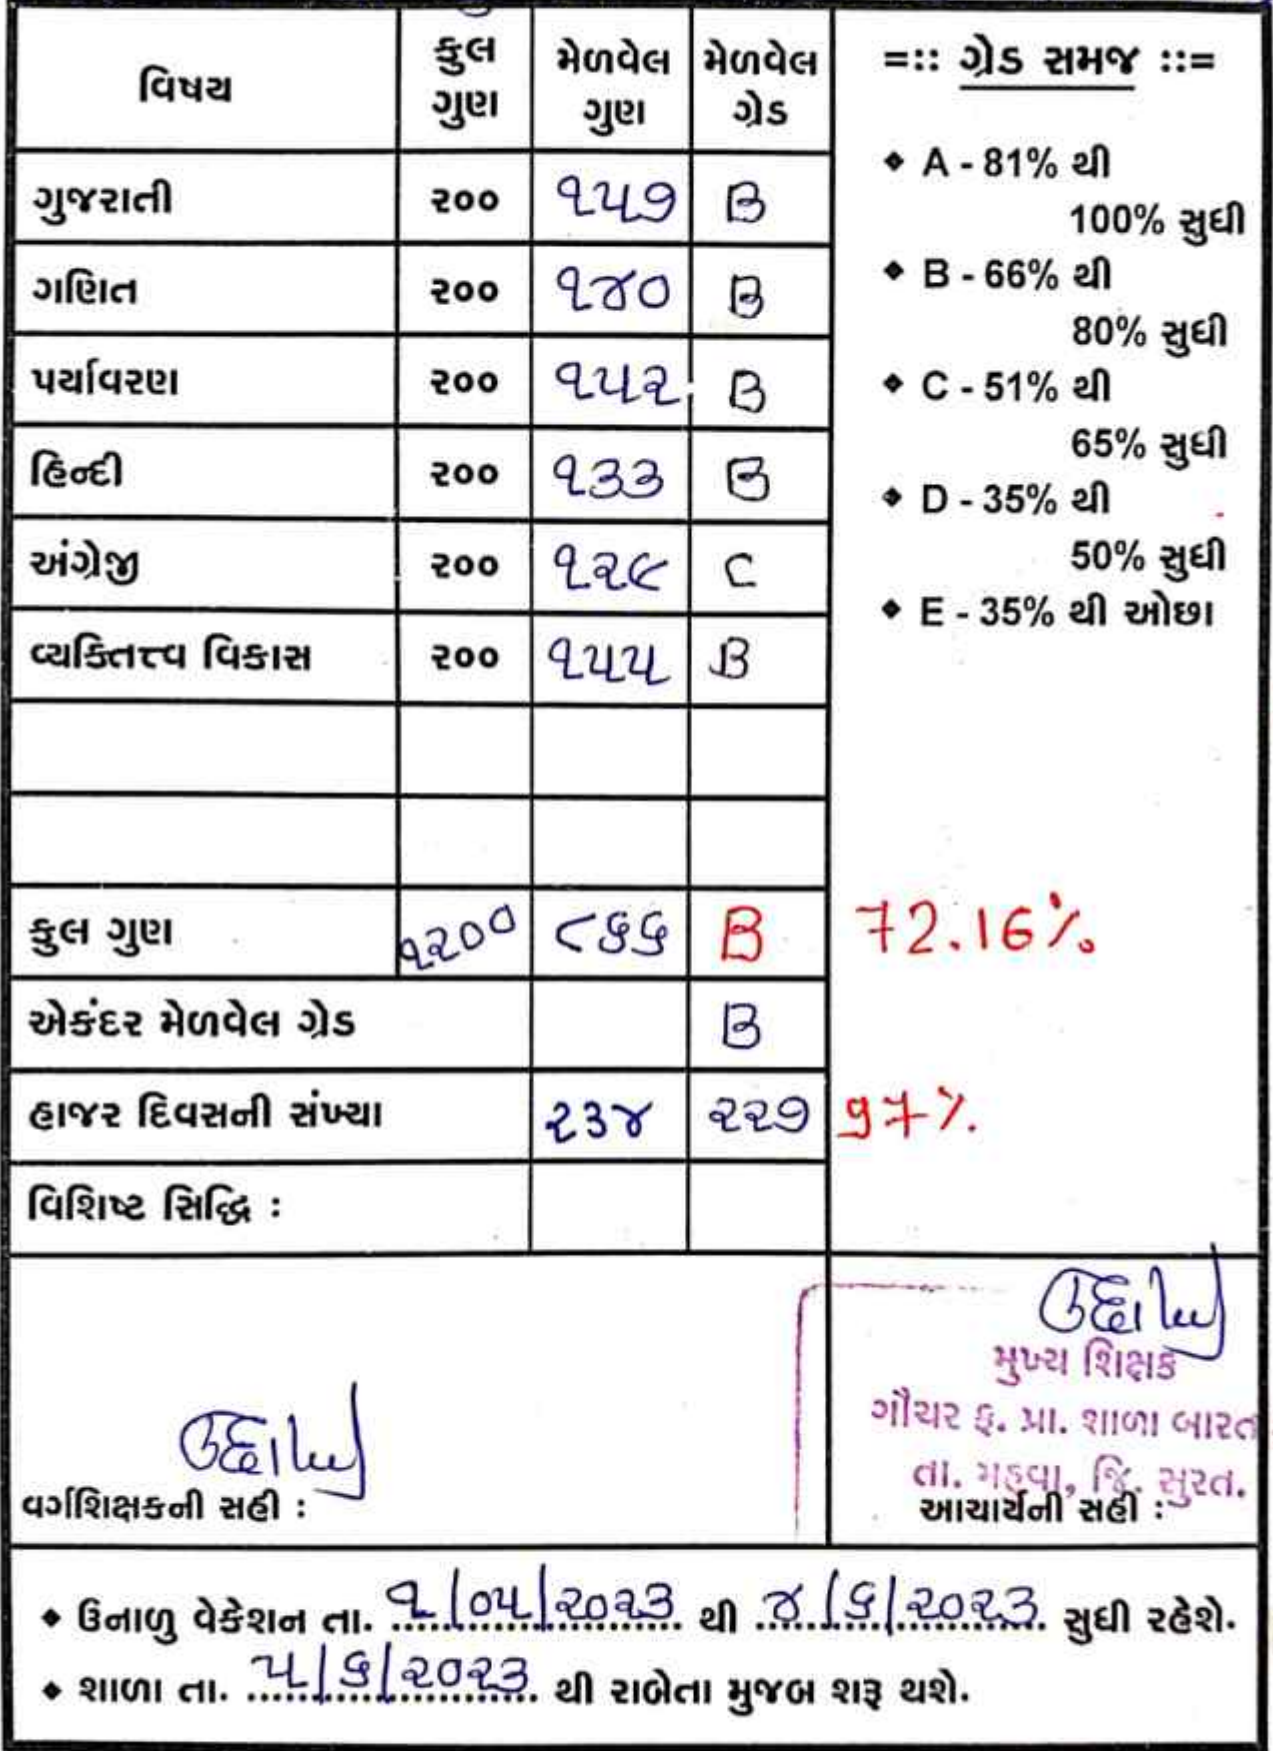 વિષય કુલ ગુણ મેળવેલ ગુણ મેળવેલ ગ્રેડ
ગુજરાતી ૨૦૦ ૧૫૭ B
ગણિત ૨૦૦ ૧૪૦ B
પર્યાવરણ ૨૦૦ ૧૫૨ B
હિન્દી ૨૦૦ ૧૩૩ B
અંગ્રેજી ૨૦૦ ૧૨૯ C
વ્યક્તિત્ત્વ વિકાસ ૨૦૦ ૧૫૫ B
કુલ ગુણ ૧૨૦૦ ૮૬૬ B 72.16%
એકંદર મેળવેલ ગ્રેડ B
હાજર દિવસની સંખ્યા ૨૩૪ ૨૨૭ 97%
વિશિષ્ટ સિદ્ધિ :
=:: ગ્રેડ સમજ ::=
◆ A - 81% થી
100% સુધી
◆ B - 66% થી
80% સુધી
◆ C - 51% થી
65% સુધી
◆ D - 35% થી
50% સુધી
◆ E - 35% થી ઓછા
વર્ગશિક્ષકની સહી :
મુખ્ય શિક્ષક
ગૌચર ફ. પ્રા. શાળા બારત
તા. મહુવા, જિ. સુરત.
આચાર્યની સહી :
◆ ઉનાળુ વેકેશન તા. ૧/૦૫/૨૦૨૩ થી ૪/૬/૨૦૨૩ સુધી રહેશે.
◆ શાળા તા. ૫/૬/૨૦૨૩ થી રાબેતા મુજબ શરૂ થશે.